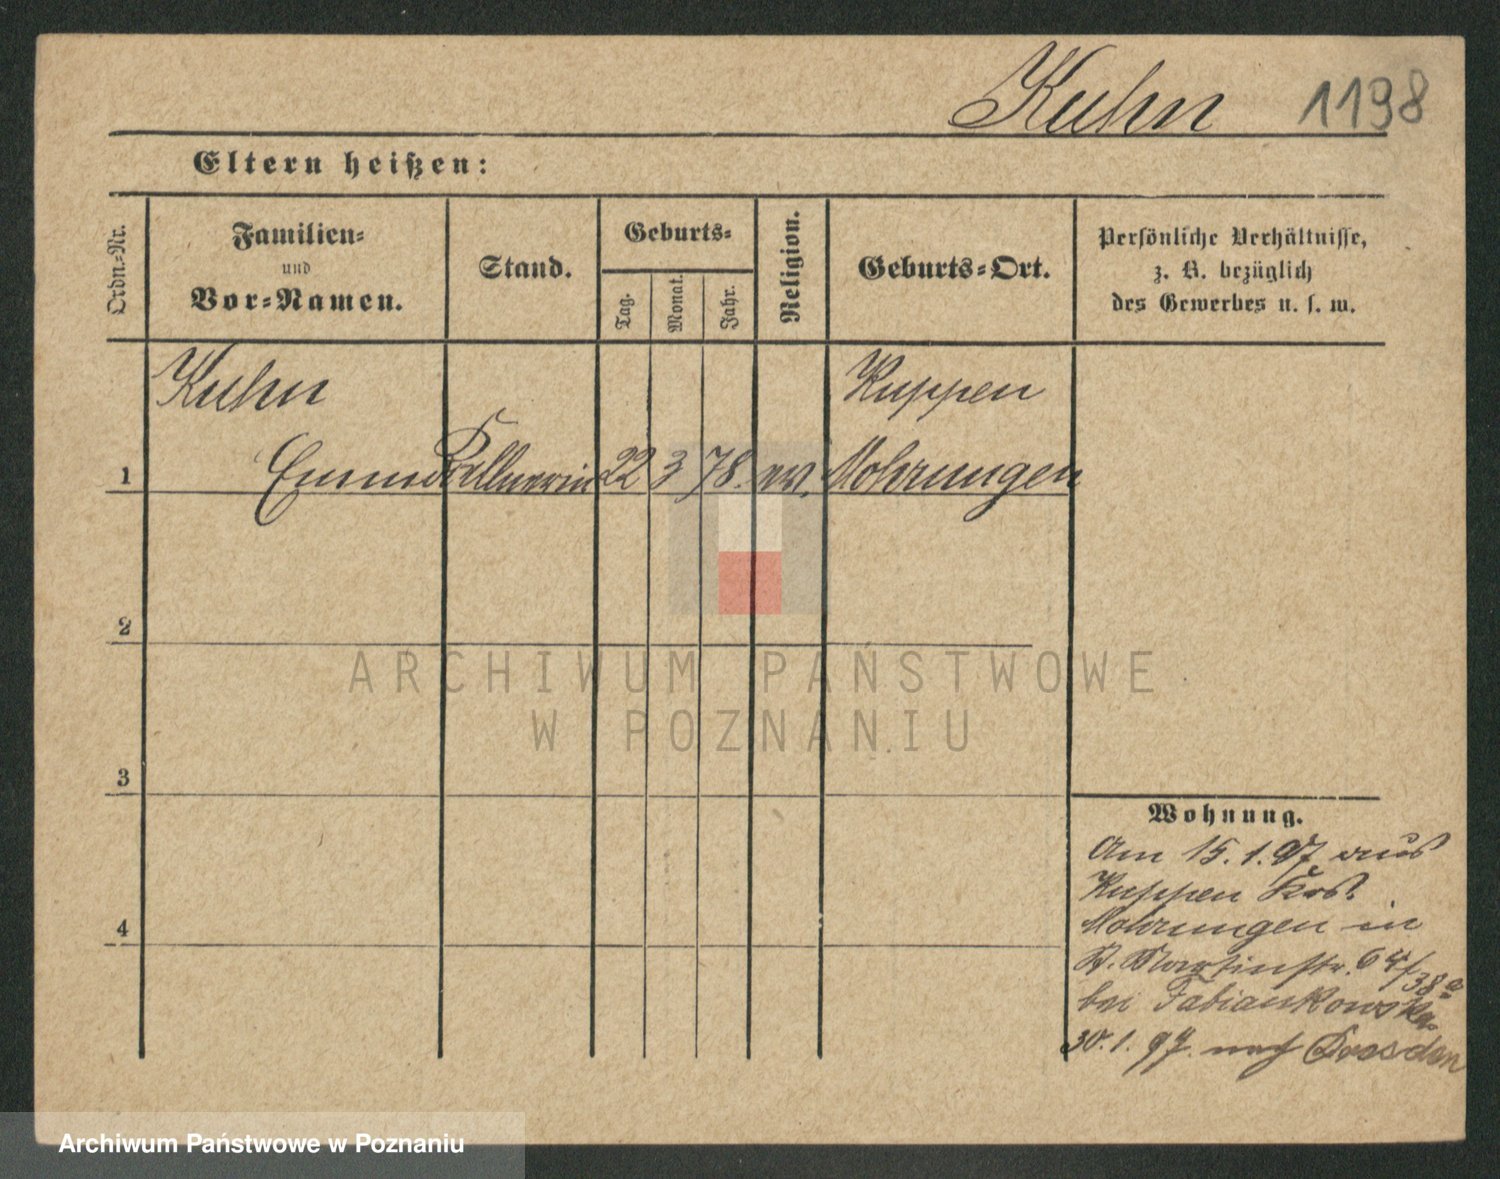 Kuhn 1198
Eltern heißen:
Ordn.-Nr.
Familien-
und
Vor-Namen.
Stand.
Geburts-
Tag.
Monat.
Jahr.
Religion.
Geburts-Ort.
Persönliche Verhältnisse,
z. B. bezüglich
des Gewerbes u. s. w.
Kuhn Kuppen
1 Emma Kellnerin 22 3 78. ev. Mohrungen
2
ARCHIWUM PAŃSTWOWE
W POZNANIU
3
Wohnung.
Am 15.1.97 aus
Kuppen Krs.
4
Mohrungen in
St. Martinstr. 64/38a
bei Fabiankowska.
30.1.97. nach Dresden
Archiwum Państwowe w Poznaniu